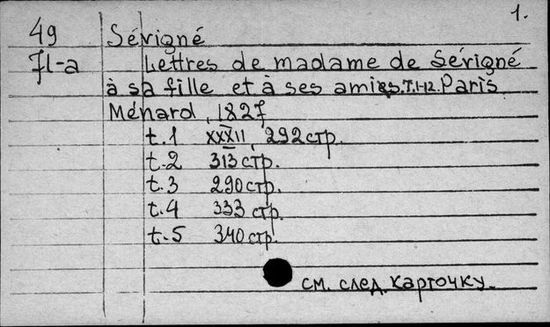 1.
49 Sévigné
71-a Lettres de madame de Sévigné
à sa fille et à ses amies. T.1-12. Paris
Ménard, 1827
t.1 XXXII, 292 стр.
t.2 313 стр.
t.3 290 стр.
t.4 333 стр.
t.5 340 стр.
см. след. карточку.